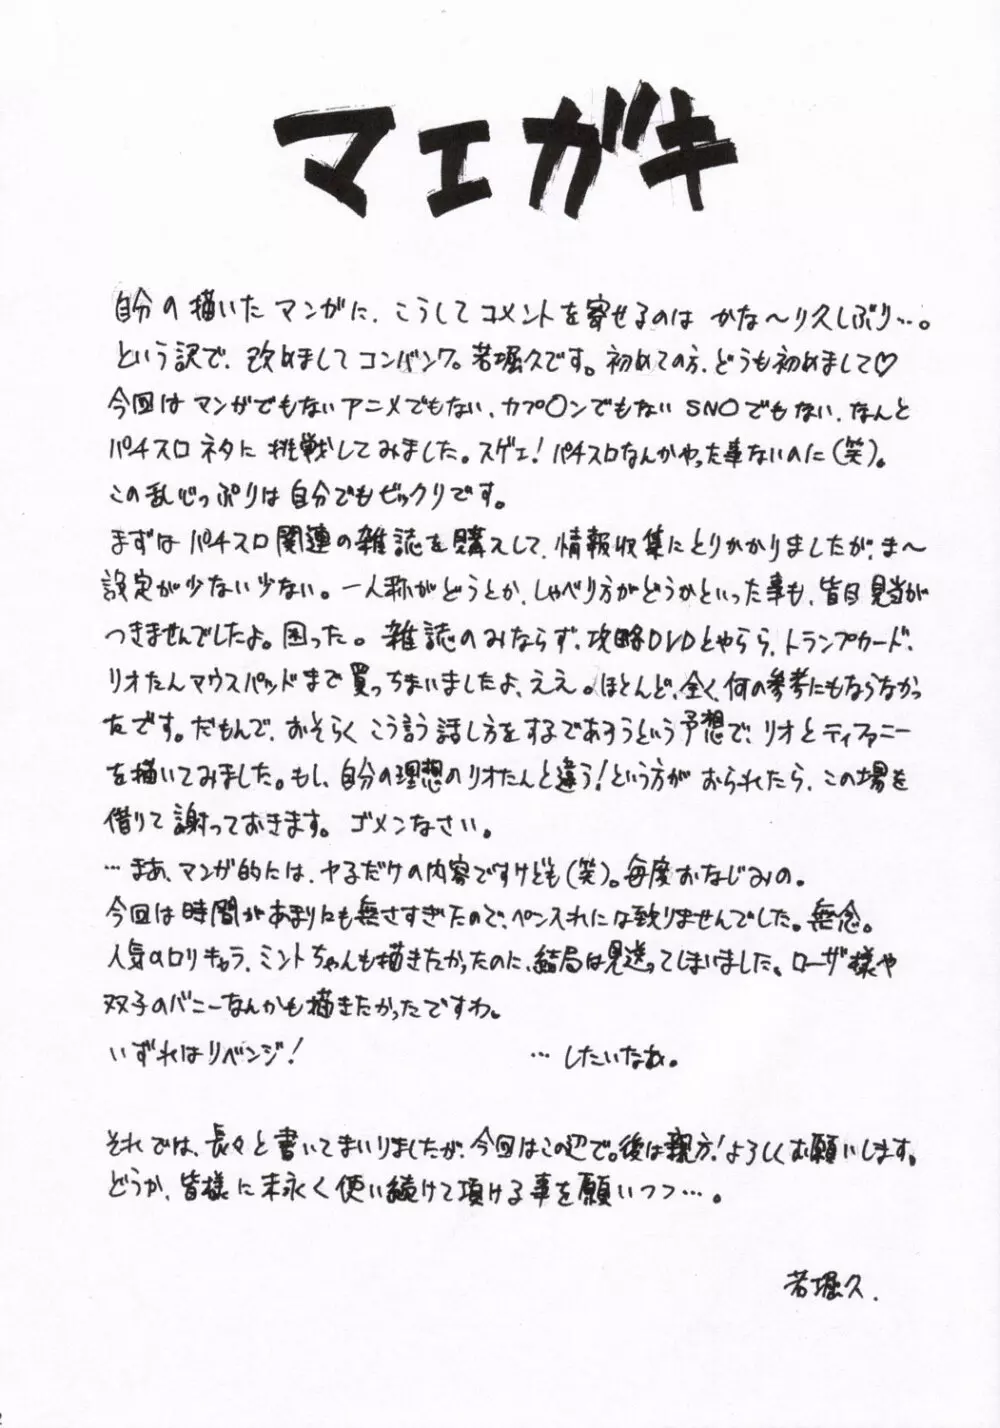 マエガキ
自分の描いたマンガに、こうしてコメントを寄せるのは かな〜り久しぶり…。
という訳で、改めましてコンバンワ。若堀久です。初めての方、どうも初めまして♡
今回はマンガでもないアニメでもない、カプ○ンでもない SNOでもない、なんと
パチスロネタに挑戦してみました。スゲェ!パチスロなんかやった事ないのに(笑)。
この乱心っぷりは自分でもビックリです。
まずはパチスロ関連の雑誌を購入して、情報収集にとりかかりましたが、ま〜
設定が少ない少ない。一人称がどうとか、しゃべり方がどうかといった事も、皆目見当が
つきませんでしたよ。困った。雑誌のみならず、攻略DVDとやらら、トランプカード、
リオたんマウスパッドまで買っちまいましたよ、ええ。ほとんど、全く、何の参考にもならなかっ
たです。だもんで、おそらくこう言う話し方をするであろうという予想で、リオとティファニー
を描いてみました。もし、自分の理想のリオたんと違う!という方がおられたら、この場を
借りて謝っておきます。ゴメンなさい。
…まあ、マンガ的には、ヤるだけの内容ですけども(笑)。毎度おなじみの。
今回は時間があまりにも無さすぎたので、ペン入れには致りませんでした。無念。
人気のロリキャラ、ミントちゃんも描きたかったのに、結局は見送ってしまいました。ローザ様や
双子のバニーなんかも描きたかったですわ。
いずれはリベンジ! …したいなぁ。
それでは、長々と書いてまいりましたが、今回はこの辺で。後は親方!よろしくお願いします。
どうか、皆様に末永く使い続けて頂ける事を願いつつ…。
若堀久.
2